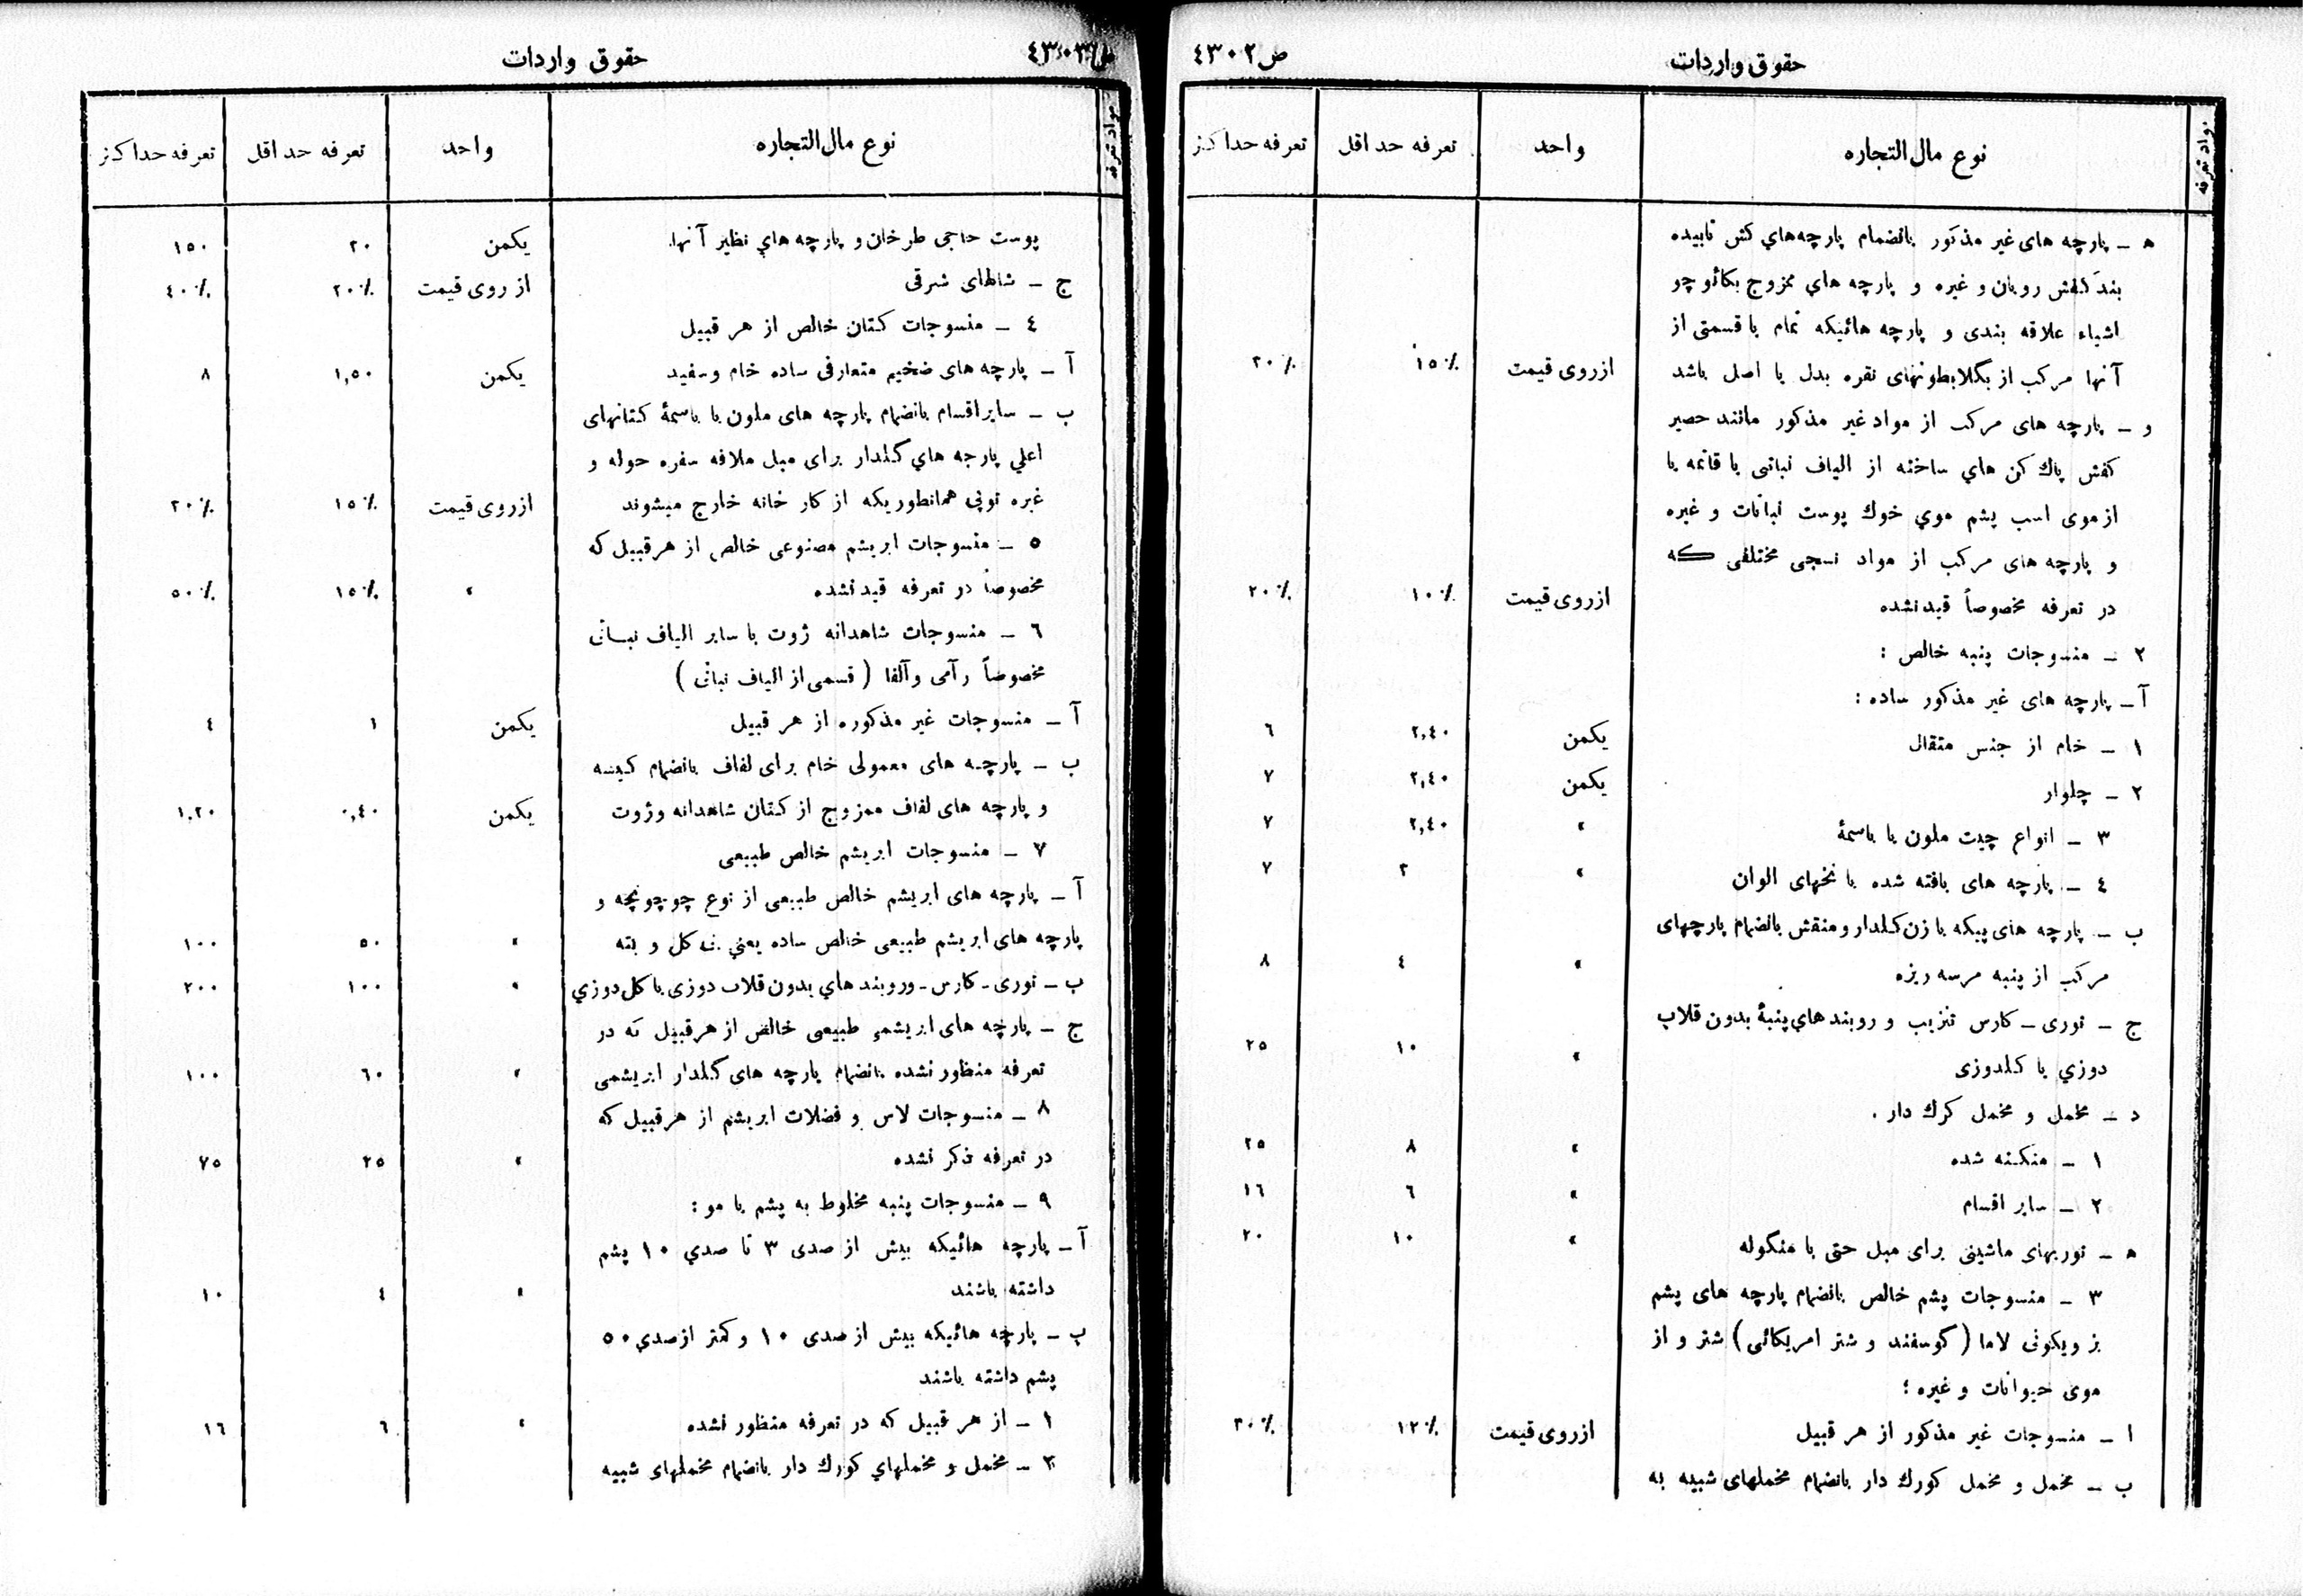 حقوق واردات
ص ٤٣٠٢
مواد تعرفه
نوع مال التجاره
واحد
تعرفه حداقل
تعرفه حداکثر
ه ـ پارچه های غیر مذکور بانضمام پارچه‌های کش تابیده
بند کفش روبان و غیره و پارچه های ممزوج بکائوچو
اشیاء علاقه بندی و پارچه هائیکه تمام یا قسمتی از
آنها مرکب از بگلابطونهای نقره بدل یا اصل باشد ازروی قیمت ١٥٪ ٣٠٪
و ـ پارچه های مرکب از مواد غیر مذکور مانند حصیر
کفش پاك کن های ساخته از الیاف نباتی یا قاتمه یا
ازموی اسب پشم موی خوك پوست نباتات و غیره
و پارچه های مرکب از مواد نسجی مختلفی که
در تعرفه مخصوصاً قید نشده ازروی قیمت ١٠٪ ٢٠٪
٢ ـ منسوجات پنبه خالص :
آ ـ پارچه های غیر مذکور ساده :
١ ـ خام از جنس متقال یکمن ٢,٤٠ ٦
٢ ـ چلوار یکمن ٢,٤٠ ٧
٣ ـ انواع چیت ملون یا باسمهٔ » ٢,٤٠ ٧
٤ ـ پارچه های بافته شده با نخهای الوان » ٣ ٧
ب ـ پارچه های پیکه بازن گلدار و منقش بانضمام پارچهای
مرکب از پنبه مرسه ریزه » ٤ ٨
ج ـ توری ـ گارس تنزیب و روبندهای پنبهٔ بدون قلاب
دوزی یا گلدوزی » ١٠ ٢٥
د ـ مخمل و مخمل کرك دار .
١ ـ منگنه شده » ٨ ٢٥
٢ ـ سایر اقسام » ٦ ١٦
ه ـ توریهای ماشینی برای مبل حتی با منگوله » ١٠ ٢٠
٣ ـ منسوجات پشم خالص بانضمام پارچه های پشم
بز ویکونی لاما (گوسفند و شتر امریکائی) شتر و از
موی حیوانات و غیره :
ا ـ منسوجات غیر مذکور از هر قبیل ازروی قیمت ١٢٪ ٣٠٪
ب ـ مخمل و مخمل کورك دار بانضمام مخملهای شبیه به
حقوق واردات
ص ٤٣٠٣
مواد تعرفه
نوع مال التجاره
واحد
تعرفه حداقل
تعرفه حداکثر
پوست حاجی طرخان و پارچه های نظیر آنها. یکمن ٢٠ ١٥٠
ج ـ شالهای شرقی از روی قیمت ٢٠٪ ٤٠٪
٤ ـ منسوجات کتان خالص از هر قبیل
آ ـ پارچه های ضخیم متعارفی ساده خام وسفید یکمن ١,٥٠ ٨
ب ـ سایر اقسام بانضمام پارچه های ملون یا باسمهٔ کتانهای
اعلی پارچه های گلدار برای مبل ملافه سفره حوله و
غیره توپی همانطوریکه از کار خانه خارج میشوند ازروی قیمت ١٥٪ ٢٠٪
٥ ـ منسوجات ابریشم مصنوعی خالص از هرقبیل که
مخصوصاً در تعرفه قید نشده » ١٥٪ ٥٠٪
٦ ـ منسوجات شاهدانه ژوت یا سایر الیاف نباتی
مخصوصاً رآمی وآلفا (قسمی از الیاف نباتی)
آ ـ منسوجات غیر مذکوره از هر قبیل یکمن ١ ٤
ب ـ پارچه های معمولی خام برای لفاف بانضمام کیسه
و پارچه های لفاف ممزوج از کتان شاهدانه وژوت یکمن ٠,٤٠ ١,٢٠
٧ ـ منسوجات ابریشم خالص طبیعی
آ ـ پارچه های ابریشم خالص طبیعی از نوع چوچونچه و
پارچه های ابریشم طبیعی خالص ساده یعنی بی گل و بته » ٥٠ ١٠٠
ب ـ توری ـ گارس ـ وروبندهای بدون قلاب دوزی یا گل دوزی » ١٠٠ ٢٠٠
ج ـ پارچه های ابریشمی طبیعی خالص از هرقبیل که در
تعرفه منظور نشده بانضمام پارچه های گلدار ابریشمی » ٦٠ ١٠٠
٨ ـ منسوجات لاس و فضلات ابریشم از هرقبیل که
در تعرفه ذکر نشده » ٢٥ ٧٥
٩ ـ منسوجات پنبه مخلوط به پشم یا مو :
آ ـ پارچه هائیکه بیش از صدی ٣ تا صدی ١٠ پشم
داشته باشند » ٤ ١٠
ب ـ پارچه هائیکه بیش از صدی ١٠ و کمتر ازصدی ٥٠
پشم داشته باشند
١ ـ از هر قبیل که در تعرفه منظور نشده » ٦ ١٦
٢ ـ مخمل و مخملهای کورك دار بانضمام مخملهای شبیه